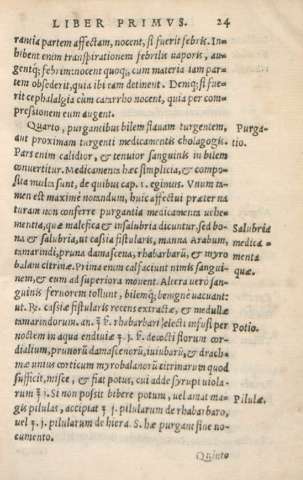 LIBER PRIMVS. 24
rantia partem affectam, nocent, si fuerit febris. In-
hibent enim transpirationem febrilis vaporis, au-
gentq; febrim: nocent quoq;, cum materia iam par-
tem obsederit, quia ibi eam detinent. Deniq; si fue-
rit cephalalgia cùm catarrho nocent, quia per com-
pressionem eum augent.
Quarto, purgantibus bilem flauam turgentem,
aut proximam turgenti medicamentis cholagogis.
Pars enim calidior, & tenuior sanguinis in bilem
conuertitur. Medicamenta hæc simplicia, & compo-
sita multa sunt, de quibus cap. 1. egimus. Vnum ta-
men est maximè notandum, huic affectui præter na
turam non conferre purgantia medicamenta vehe-
mentia, quæ malefica & insalubria dicuntur. sed bo-
na & salubria, ut cassia fistularis, manna Arabum,
tamarindi, pruna damascena, rhabarbarū, & myro
balani citrinæ. Prima enim calfaciunt nimis sangui-
nem, & eum ad superiora mouent. Altera verò san-
guinis feruorem tollunt, bilemq; benignè vacuant:
ut. Re. cassiæ fistularis recens extractæ, & medullæ
tamarindorum. an. ℥ ß. rhabarbari electi infusi per
noctem in aqua endiuiæ ʒ j. ß. decocti florum cor-
dialium, prunorū damascenorū, iuiubarū, & drach-
mæ unius corticum myrobalanorū citrinarum quod
sufficit, misce, & fiat potus, cui adde syrupi viola-
rum ℥ j. Si non possit bibere potum, vel amat ma-
gis pilulas, accipiat ʒ j. pilularum de rhabarbaro,
vel ʒ. j. pilularum de hiera. S. hæ purgant sine no-
cumento.
Quinto
Purga-
tio.
Salubria
medica-
menta
quæ.
Potio.
Pilulæ.